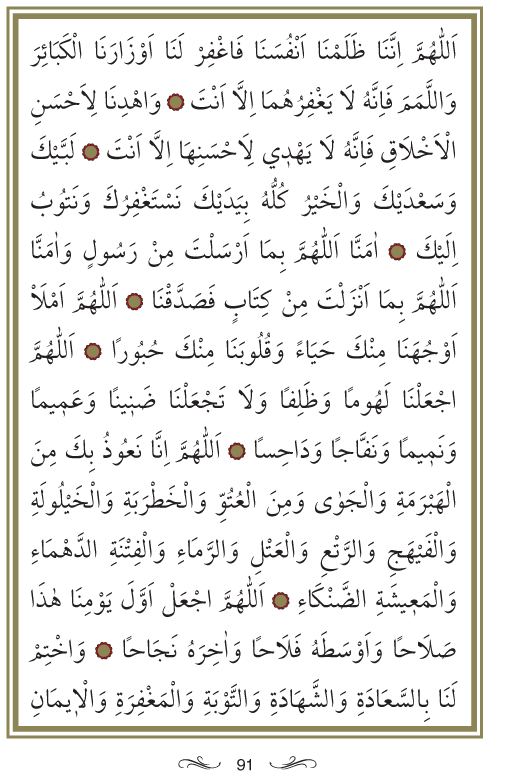 اَللّٰهُمَّ اِنَّنَا ظَلَمْنَا اَنْفُسَنَا فَاغْفِرْ لَنَا اَوْزَارَنَا الْكَبَائِرَ
وَاللَّمَمَ فَاِنَّهُ لَا يَغْفِرُهُمَا اِلَّا اَنْتَ ۞ وَاهْدِنَا لِاَحْسَنِ
الْاَخْلَاقِ فَاِنَّهُ لَا يَهْدٖي لِاَحْسَنِهَا اِلَّا اَنْتَ ۞ لَبَّيْكَ
وَسَعْدَيْكَ وَالْخَيْرُ كُلُّهُ بِيَدَيْكَ نَسْتَغْفِرُكَ وَنَتُوبُ
اِلَيْكَ ۞ اٰمَنَّا اَللّٰهُمَّ بِمَا اَرْسَلْتَ مِنْ رَسُولٍ وَاٰمَنَّا
اَللّٰهُمَّ بِمَا اَنْزَلْتَ مِنْ كِتَابٍ فَصَدَّقْنَا ۞ اَللّٰهُمَّ امْلَاْ
اَوْجُهَنَا مِنْكَ حَيَاءً وَقُلُوبَنَا مِنْكَ حُبُورًا ۞ اَللّٰهُمَّ
اجْعَلْنَا لَهُومًا وَظَلِفًا وَلَا تَجْعَلْنَا ضَنٖينًا وَعَمٖيمًا
وَنَمٖيمًا وَنَفَّاجًا وَدَاحِسًا ۞ اَللّٰهُمَّ اِنَّا نَعُوذُ بِكَ مِنَ
الْهَبْرَمَةِ وَالْجَوٰى وَمِنَ الْعُتُوِّ وَالْخَطْرَبَةِ وَالْخَيْلُولَةِ
وَالْفَيْهَجِ وَالرَّتْعِ وَالْعَتْلِ وَالرَّمَاءِ وَالْفِتْنَةِ الدَّهْمَاءِ
وَالْمَعٖيشَةِ الضَّنْكَاءِ ۞ اَللّٰهُمَّ اجْعَلْ اَوَّلَ يَوْمِنَا هٰذَا
صَلَاحًا وَاَوْسَطَهُ فَلَاحًا وَاٰخِرَهُ نَجَاحًا ۞ وَاخْتِمْ
لَنَا بِالسَّعَادَةِ وَالشَّهَادَةِ وَالتَّوْبَةِ وَالْمَغْفِرَةِ وَالْاٖيمَانِ
91